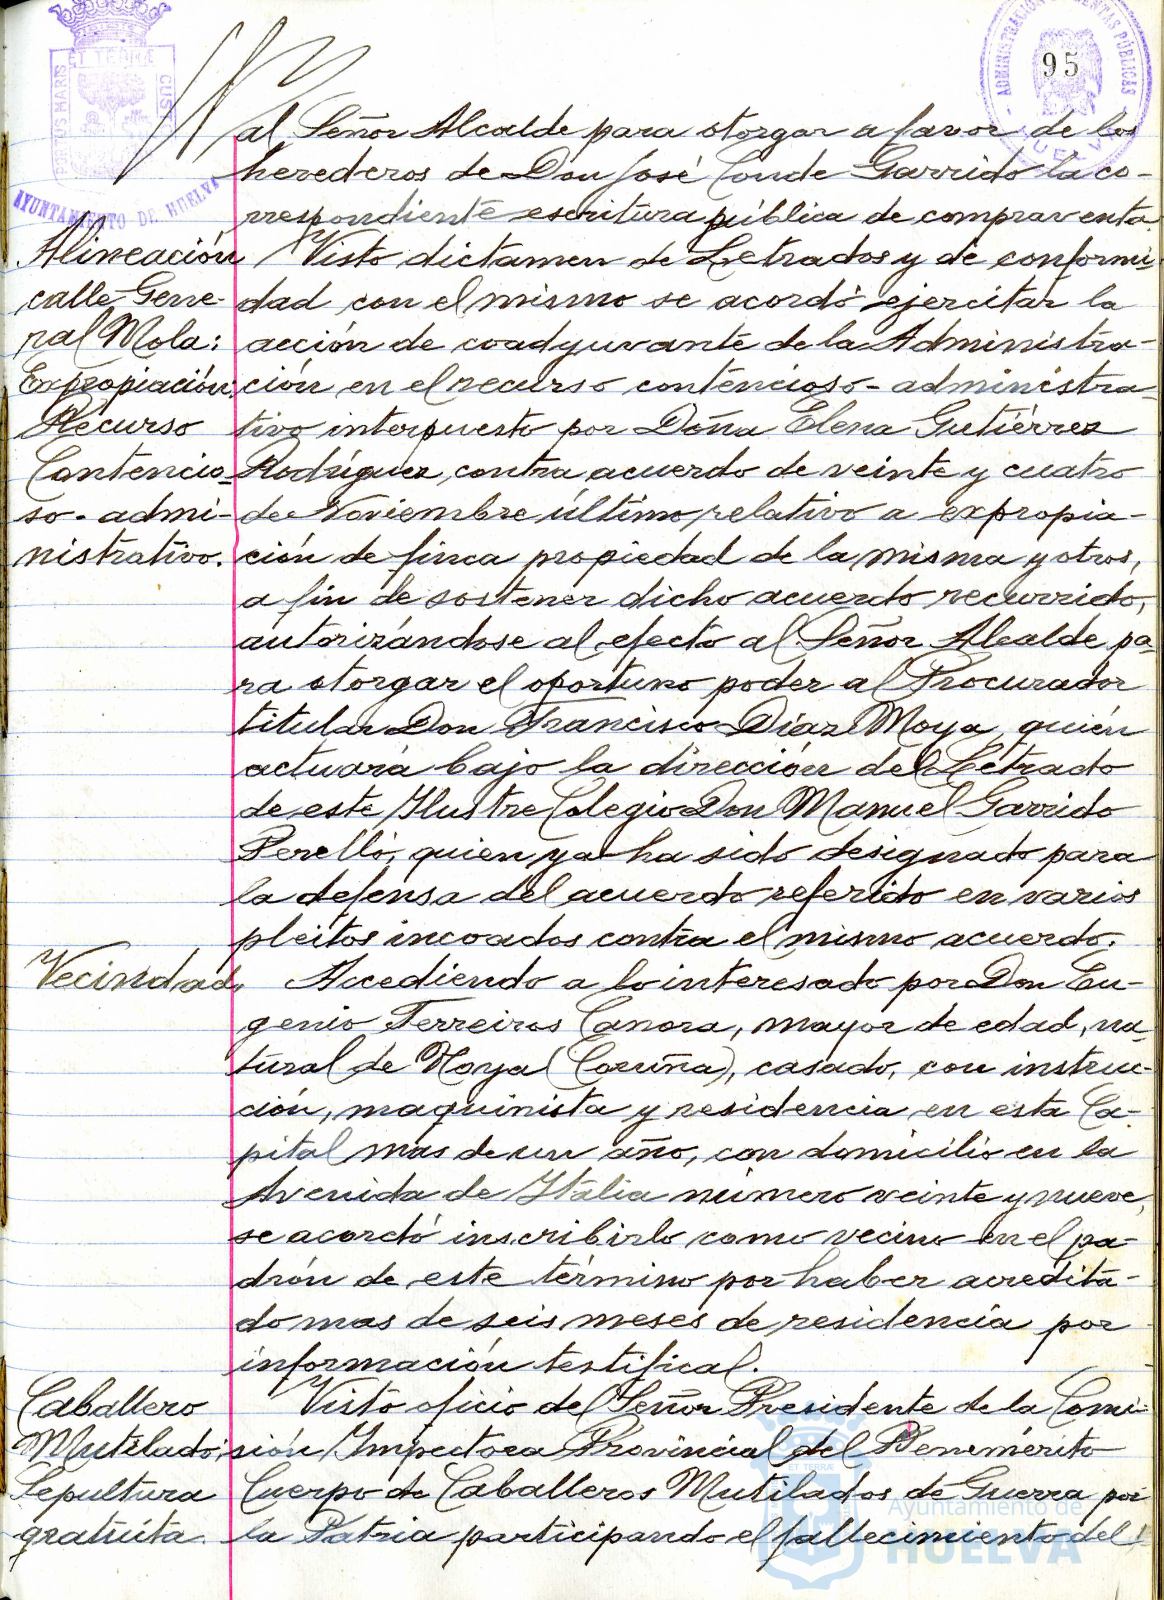 ET TERRÆ
PORTUS MARIS
CUSTO
AYUNTAMIENTO DE HUELVA
ADMINISTRACIÓN DE RENTAS PÚBLICAS
HUELVA
95
al Señor Alcalde para otorgar a favor de los
herederos de Don José Conde Garrido la co-
rrespondiente escritura pública de compraventa.
Alineación
calle Gene-
ral Mola:
Expropiación.
Recurso
Contencio-
so-admi-
nistrativo.
Visto dictamen de Letrados y de conformi-
dad con el mismo se acordó ejercitar la
acción de coadyuvante de la Administra-
ción en el recurso contencioso-administra-
tivo interpuesto por Doña Elena Gutiérrez
Rodríguez, contra acuerdo de veinte y cuatro
de Noviembre último, relativo a expropia-
ción de finca propiedad de la misma y otros,
a fin de sostener dicho acuerdo recurrido,
autorizándose al efecto al Señor Alcalde pa-
ra otorgar el oportuno poder al Procurador
titular Don Francisco Díaz Moya, quién
actuará bajo la dirección del Letrado
de este Ilustre Colegio Don Manuel Garrido
Perelló, quien ya ha sido designado para
la defensa del acuerdo referido en varios
pleitos incoados contra el mismo acuerdo.
Vecindad.
Accediendo a lo interesado por Don Eu-
genio Ferreiros Canora, mayor de edad, na-
tural de Noya (Coruña), casado, con instruc-
ción, maquinista y residencia en esta Ca-
pital mas de un año, con domicilio en la
Avenida de Italia número veinte y nueve,
se acordó inscribirlo como vecino en el pa-
drón de este término por haber acredita-
do mas de seis meses de residencia por
información testifical.
Caballero
Mutilado:
Sepultura
gratuita.
Visto oficio del Señor Presidente de la Comi-
sión Inspectora Provincial del Benemérito
Cuerpo de Caballeros Mutilados de Guerra por
la Patria participando el fallecimiento del
ET TERRÆ
Ayuntamiento de
HUELVA